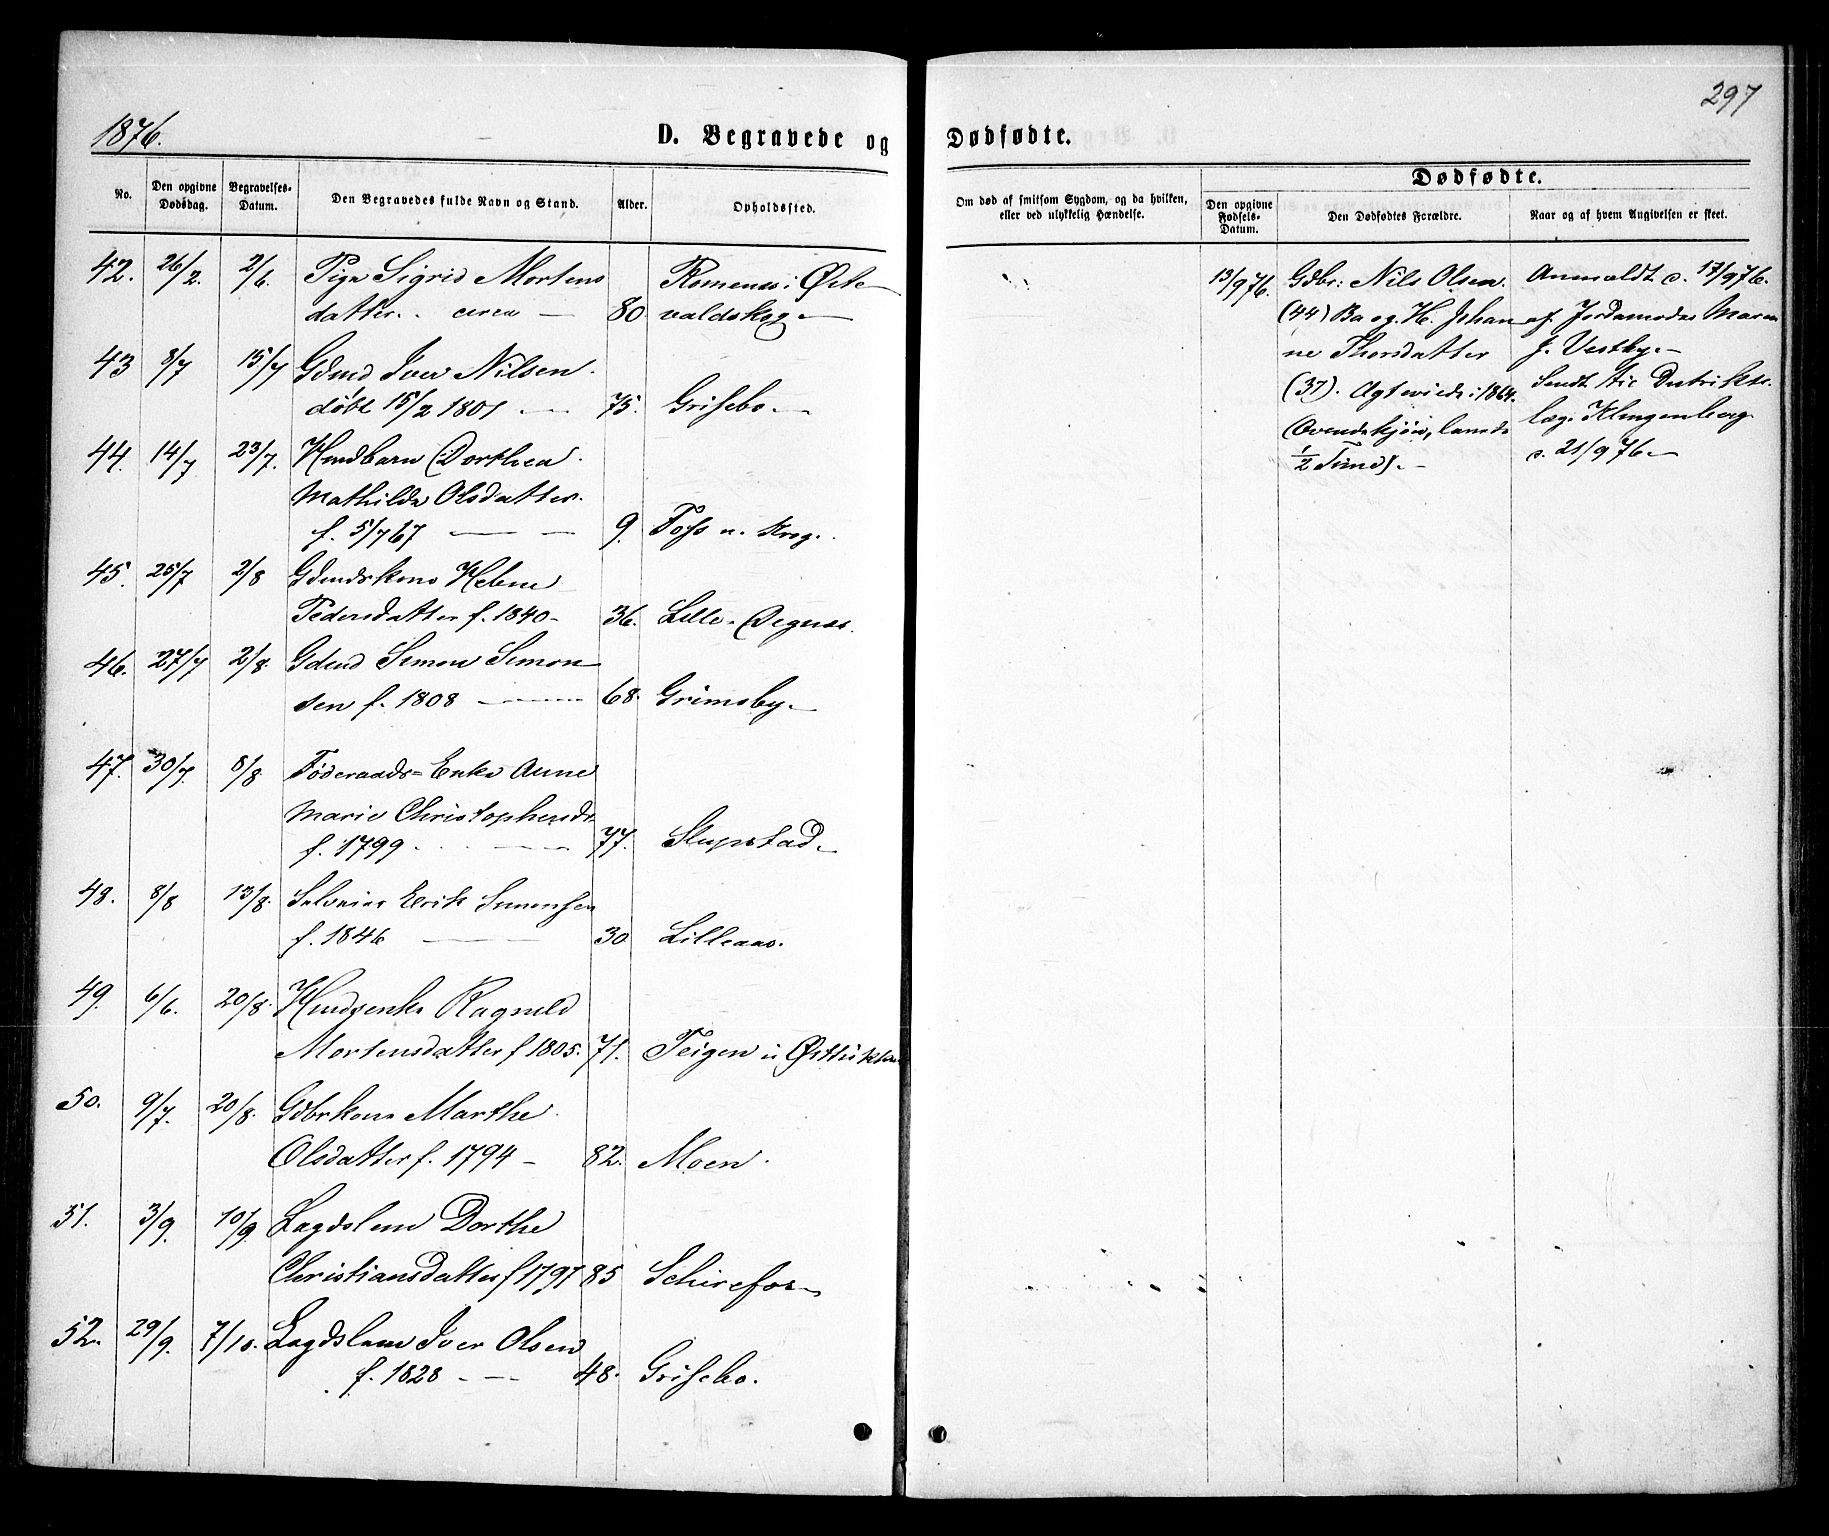 297
1876.
D. Begravede og Dødfødte.
No.
Den opgivne Dødsdag.
Begravelses-Datum.
Den Begravedes fulde Navn og Stand.
Alder.
Opholdssted.
Om død af smitsom Sygdom, og da hvilken, eller ved ulykkelig Hændelse.
Dødfødte.
Den opgivne Fødsels-Datum.
Den Dødfødtes Forældre.
Naar og af hvem Angivelsen er skeet.
42. 26/2. 2/6. Pige Sigrid Mortens
datter. circa — 80 valdskog —
43 8/7 15/7 Gdmd Iver Nilsen
døbt 15/2 1801 — 75. Grisebo —
44. 14/7 23/7. Hmdbarn Dorthea
Mathilde Olsdatter.
f. 5/7 67 — — 9. Foss u. Krog.
45. 25/7 2/8 Gdmdskone Helene
Pedersdatter f. 1840 - 36. Lille-Degnes.
46. 27/7 2/8. Gdmd Simon Simon
sen f. 1808 — 68. Grimsby —
47. 30/7. 8/8 Føderaads-Enke Anne
Marie Christophersdr
f. 1799 — 77. Slupstad —
48. 8/8 13/8. Erik Simensen
f. 1846 — 30 Lilleaas.
49. 6/6. 20/8. Hmdsenke Ragnild
Mortensdatter f 1805. 71. Teigen u
50. 9/7. 20/8. Gdbrkone Marthe
Olsdatter f. 1794 — 82. Moen.
51. 3/9. 10/9. Lagdslem Dorthe
Christiansdatter f 1797 85
52. 29/9. 7/10. Lagdslem Iver Olsen
f. 1828 - — 48. Grisebo.
13/9 76. Gdbr: Nils Olsen. Anmeldt d. 17/9 76.
(44) Ba og H. Johan af Jordamoder Maren
ne Thorsdatter J. Vestby. —
(37). Ægteviede: 1864. Sendt til Distrikts.
læge Klingenberg
1/2 d. 21/9 76 —